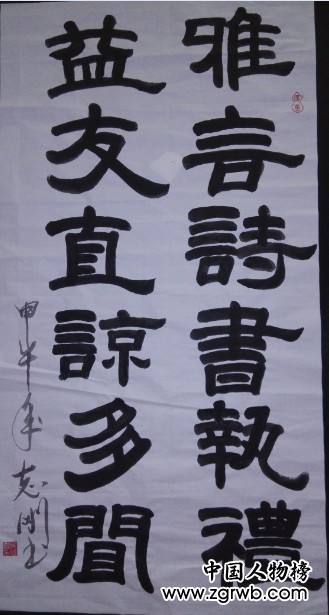 雅言詩書執禮
益友直諒多聞
甲午年 志刚书
中国人物榜
www.zgrwb.com